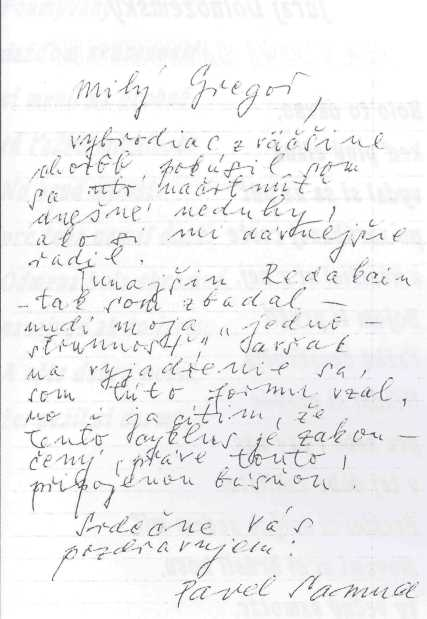 Milý Gregor,
vybrodiac z väčšine
chorôb pokúsil som
sa načrtnúť
dnešné neduhy,
ako si mi dávnejšie
radil.
Tunajším
– tak som zbadal –
nudí moja „jedno-
strunnosť“ avšak
na vyjadrenie sa,
som túto formu vzal,
no i ja cítim, že
tento cyklus je zakon-
čený, práve touto,
pripojenou básňou
Srdečne Vás
pozdravujem!
Pavel